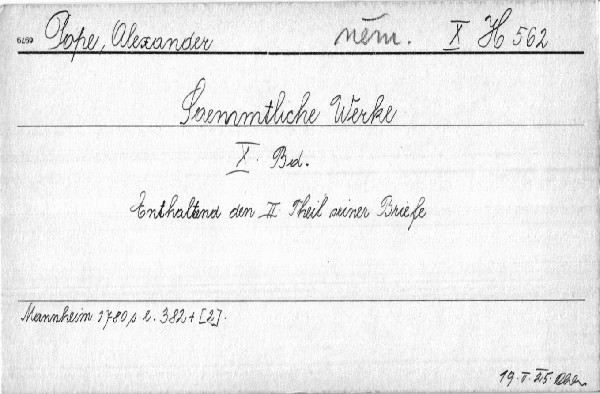 Pope, Alexander něm. X H 562
Saemmtliche Werke
X. Bd.
Enthaltend den II Theil seiner Briefe
Mannheim 1780, s. 382 + [2].
19. V. 25.